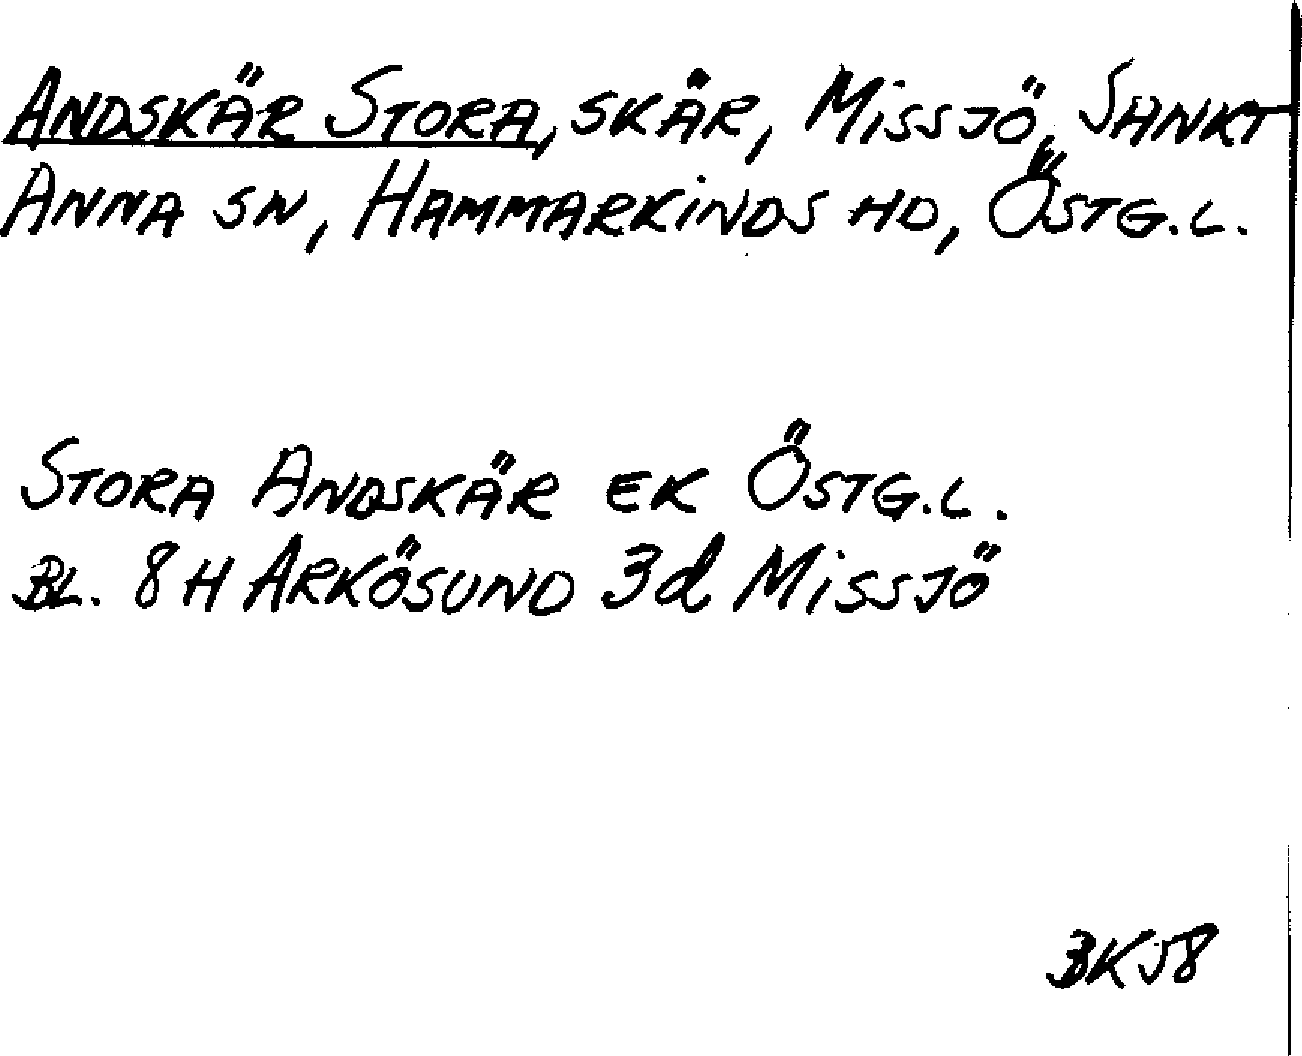 ANDSKÄR STORA, SKÄR, MISSJÖ, SANKT
ANNA SN, HAMMARKINDS HD, ÖSTG.L.
STORA ANDSKÄR EK ÖSTG.L.
BL. 8H ARKÖSUND 3d MISSJÖ
BK58